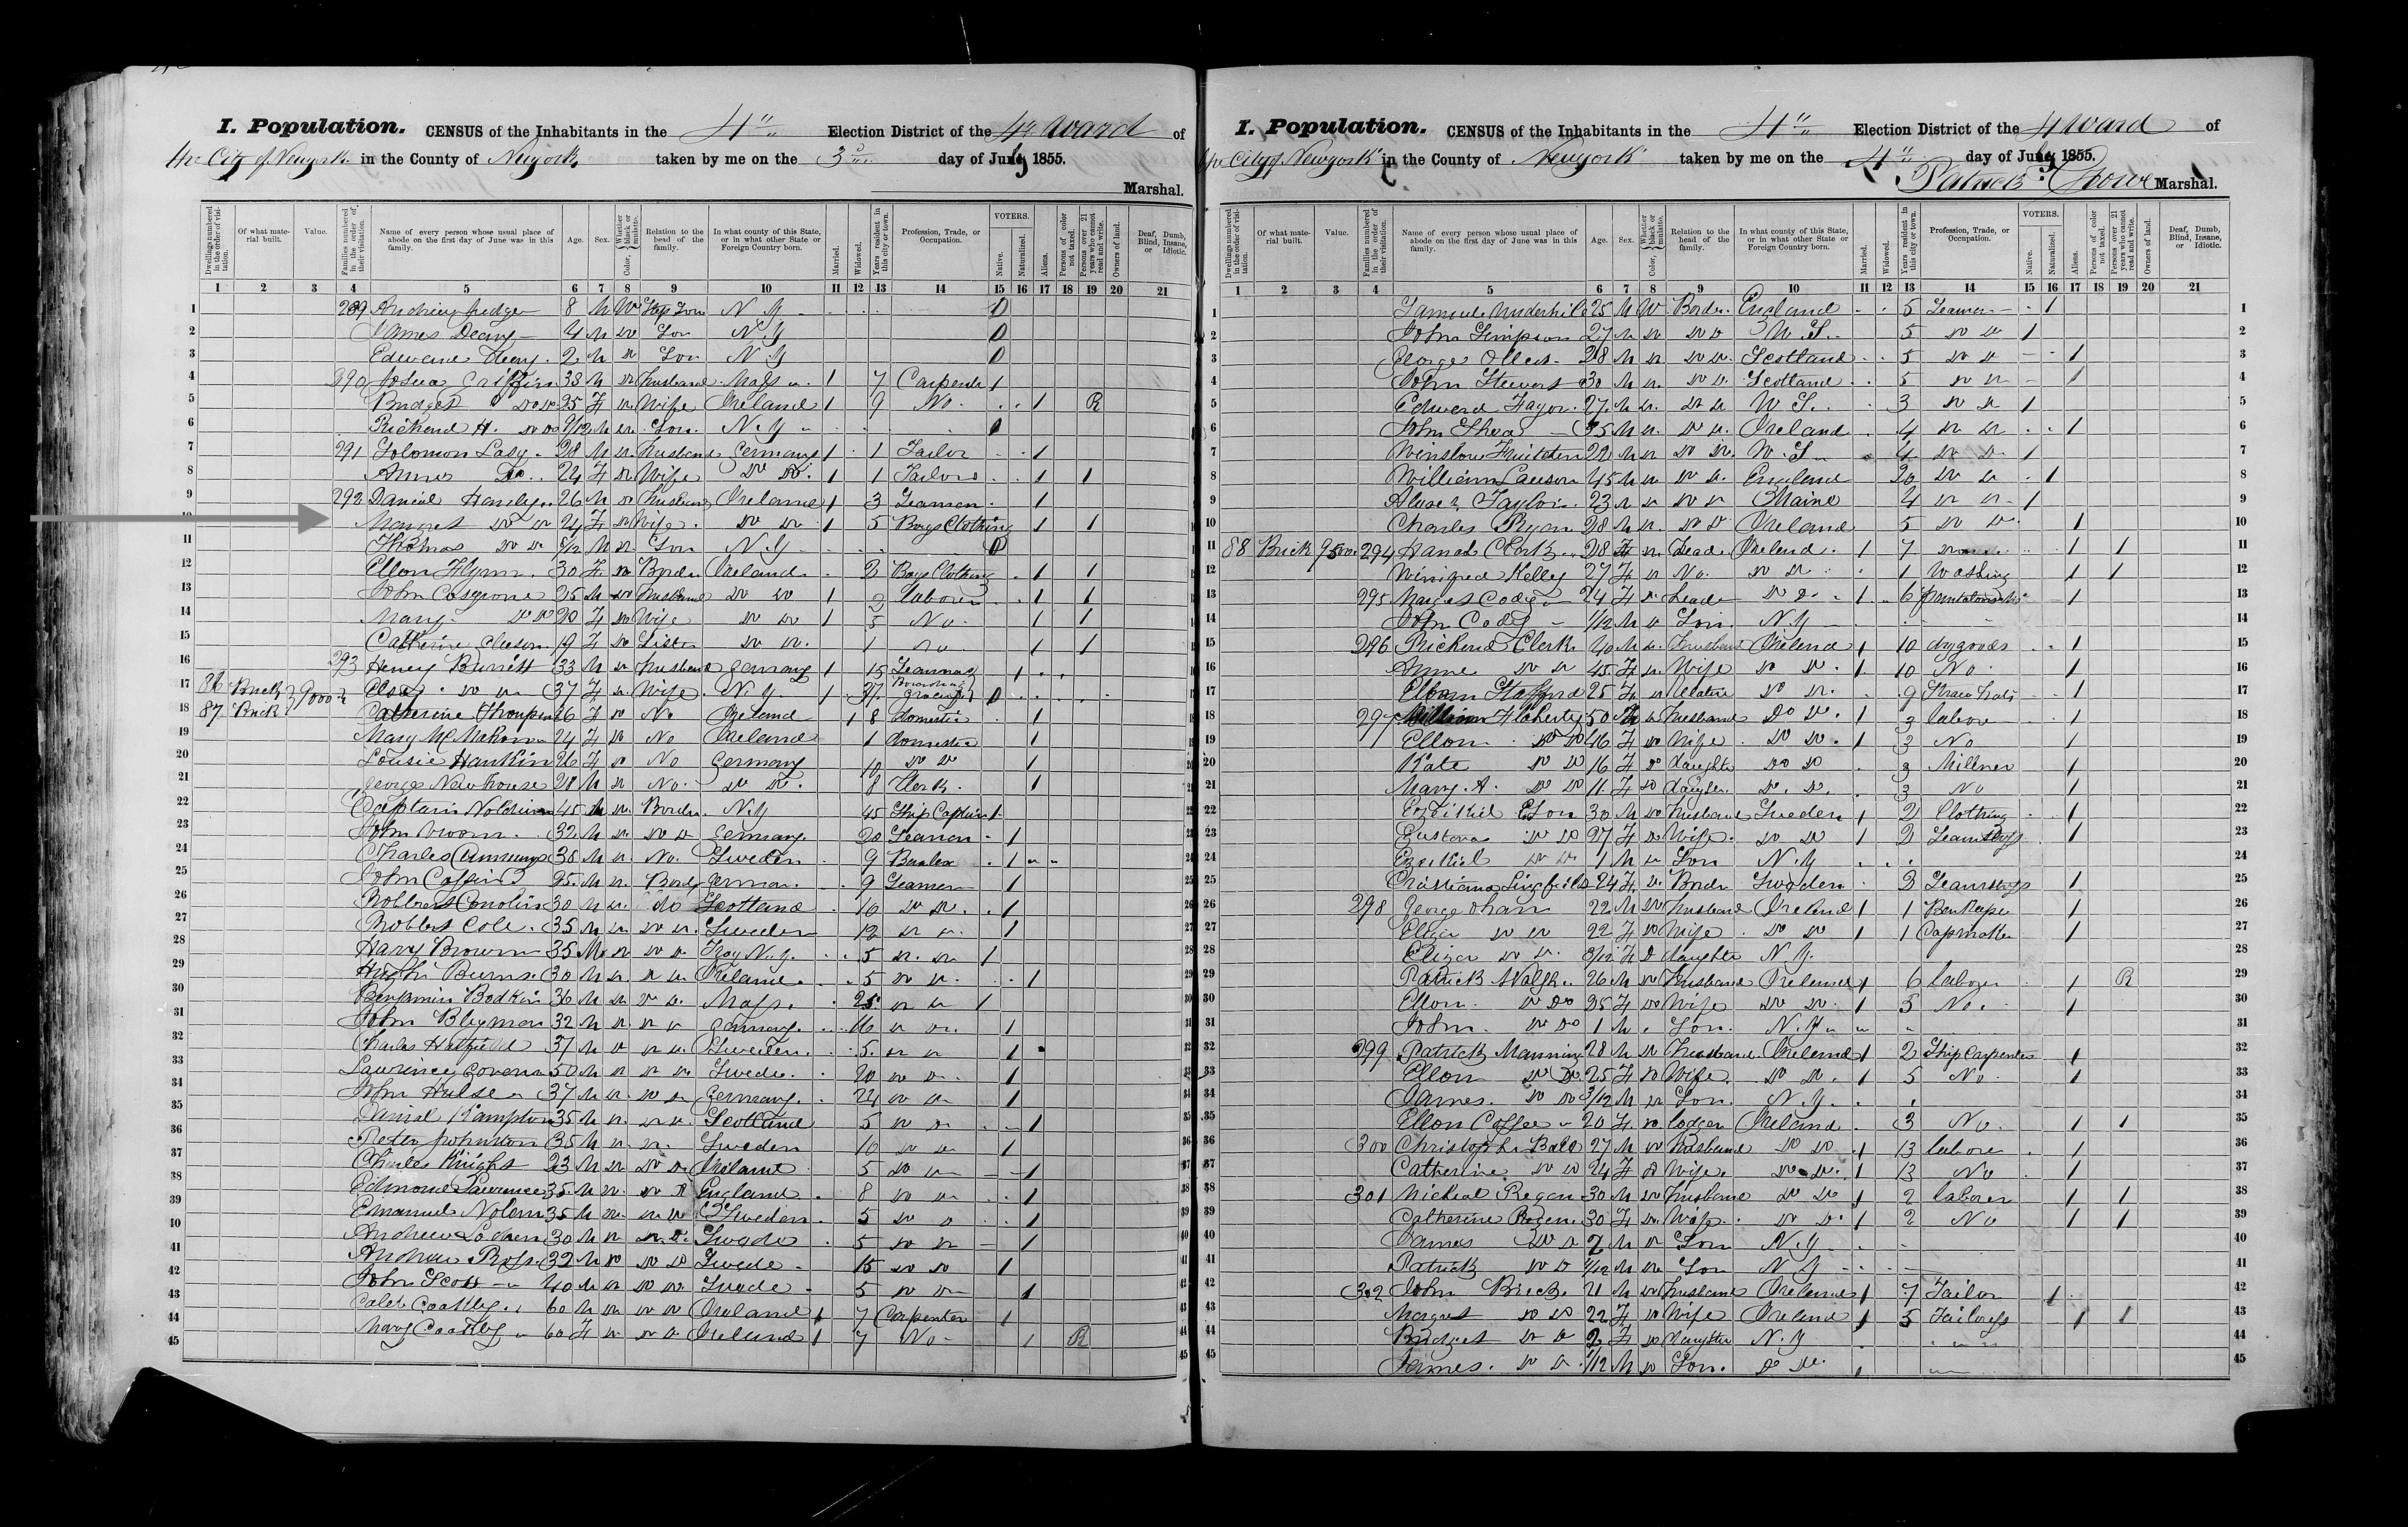 I. Population. CENSUS of the Inhabitants in the 4" Election District of the 4th Ward of
the City of Newyork in the County of Newyork taken by me on the 3 day of July 1855.
Marshal.
Dwellings numbered in the order of visitation.
Of what material built.
Value.
Families numbered in the order of their visitation.
Name of every person whose usual place of abode on the first day of June was in this family.
Age.
Sex.
Color, Whether black or mulatto.
Relation to the head of the family.
In what county of this State, or in what other State or Foreign Country born.
Married.
Widowed.
Years resident in this city or town.
Profession, Trade, or Occupation.
VOTERS.
Native.
Naturalized.
Aliens.
Persons of color not taxed.
Persons over 21 years who cannot read and write.
Owners of land.
Deaf, Dumb, Blind, Insane, or Idiotic.
1 2 3 4 5 6 7 8 9 10 11 12 13 14 15 16 17 18 19 20 21
1 289 8 M W Step Son N Y
2 James Deany 4 M Do Son N Y
3 2 M Do Son N Y
4 290 Griffin 38 M Do Husband Mass 1 7 Carpente 1
5 Bridget Do Do 25 F Do Wife Ireland 1 9 No 1 R
6 Richard H. Do Do M Do Son N.Y
7 291 Solomon Lasy 28 M Do Husband Germany 1 1 Tailor 1
8 Do 24 F Do Wife Do Do 1 1 Tailors 1 1
9 292 Daniel Hanley 26 M Do Husband Ireland 1 3 Seaman 1
10 Margret Do Do 24 F Do Wife Do Do 1 5 Boys Clothing 1 1
11 Thomas Do Do M Do Son N.Y
12 Ellon Flynn 30 F Do Border Ireland 2 Boys Clothing 1 1
13 John Cosgrove 25 M Do Husband Do Do 1 2 laborer 1 1
14 Mary Do Do 20 F Do Wife Do Do 1 5 No 1 1
15 Catherine 19 F Do Sister Do Do 1 No 1 1
16 293 Henry 33 M Do Husband Germany 1 15 1
17 86 Brick 9000 Do Do 37 F Do Wife N.Y 1 37
18 87 Brick Catherine 26 F Do No Ireland 1 8 domestic 1
19 Mary McMahon 24 F Do No Ireland 1 domestic 1
20 Lousie Hankin 26 F Do No Germany 10 Do Do 1
21 George Newhouse 28 M Do No Do Do 8 Clerk 1
22 Captain 45 M Do Border N.Y 45 Ship Captain 1
23 John Vroom 32 M Do Do Do Germany 20 Seaman 1
24 Charles Cummings 38 M Do No Sweden 9 1
25 John Coffin 25 M Do Bord German 9 Seaman 1
26 Robbert 30 M Do do Scotland 10 Do Do 1
27 Robbert Cole 35 M Do Do Do Sweden 12 Do Do 1
28 Harry Brown 35 M Do Do Do Troy N.Y. 5 Do Do 1
29 Hugh Burns 30 M Do Do Do Ireland 5 Do Do 1
30 Benjamin Bodkin 36 M Do Do Do Mass. 25 Do Do 1
31 John Bleyman 32 M Do Do Do Germany 16 Do Do 1
32 Charles Hatfield 37 M Do Do Do Sweden 5 Do Do 1
33 Lawrince 50 M Do Do Do Swede 20 Do Do 1
34 John Hulse 37 M Do Do Do Germany 24 Do Do 1
35 Danial Kampton 35 M Do Do Do Scotland 5 Do Do 1
36 Peter Johnston 35 M Do Do Sweden 10 Do Do 1
37 Charles Knight 23 M Do Do Do Ireland 5 Do Do 1
38 Edmond Lawrence 35 M Do Do Do England 8 Do Do 1
39 Emanuel Nolem 35 M Do Do Do Sweden 5 Do Do 1
40 Andrew 30 M Do Do Do Swede 5 Do Do 1
41 Andrew Ross 32 M Do Do Do Swede 15 Do Do 1
42 John Scott 40 M Do Do Do Swede 5 Do Do 1
43 Caleb Coattey 60 M Do Do Do Ireland 1 7 Carpenter 1
44 Mary Coattey 60 F Do Do Do Ireland 1 7 No 1 R
45
I. Population. CENSUS of the Inhabitants in the 4" Election District of the 4 Ward of
the City of Newyork in the County of Newyork taken by me on the 4" day of July 1855.
Patrick Marshal.
Dwellings numbered in the order of visitation.
Of what material built.
Value.
Families numbered in the order of their visitation.
Name of every person whose usual place of abode on the first day of June was in this family.
Age.
Sex.
Color, Whether black or mulatto.
Relation to the head of the family.
In what county of this State, or in what other State or Foreign Country born.
Married.
Widowed.
Years resident in this city or town.
Profession, Trade, or Occupation.
VOTERS.
Native.
Naturalized.
Aliens.
Persons of color not taxed.
Persons over 21 years who cannot read and write.
Owners of land.
Deaf, Dumb, Blind, Insane, or Idiotic.
1 2 3 4 5 6 7 8 9 10 11 12 13 14 15 16 17 18 19 20 21
1 Samuel Underhill 25 M W Border England 5 Seaman 1
2 John Simpson 27 M Do Do Do U S 5 Do Do 1
3 George 28 M Do Do Do Scotland 5 Do Do 1
4 John Stewart 30 M Do Do Do Scotland 5 Do Do 1
5 Edward Fagor 27 M Do Do Do U S 3 Do Do 1
6 John Shea 35 M Do Do Do Ireland 4 Do Do 1
7 Winslow 22 M Do Do Do U.S 4 Do Do 1
8 William Lawson 45 M Do Do Do England 20 Do Do 1
9 Taylor 23 M Do Do Do Maine 4 Do Do 1
10 Charles Ryan 28 M Do Do Do Ireland 5 Do Do 1
11 88 Brick 9500 294 Hanah Clark 28 F Do Lead Ireland 1 7 1 1
12 Winifred Kelley 27 F Do No Do Do 1 Washing 1 1
13 295 Cody 24 F Do Lead Do Do 1 6 1
14 John Cody 1/12 M Do Son N.Y
15 296 Richard Clerk 40 M Do Husband Ireland 1 10 dry goods 1
16 Anne Do Do 45 F Do Wife Do Do 1 10 No 1
17 Ellon Stafford 25 F Do Relative Do Do 9 Straw hats 1
18 297 William Flaherty 50 M Do Husband Do Do 1 3 labore 1
19 Ellon Do Do 46 F Do Wife Do Do 1 3 No 1
20 Kate Do Do 16 F Do daughte Do Do 3 Millner 1
21 Mary A. Do Do 11 F Do daughter Do Do 3 No 1
22 Ezeikiel Eson 30 M Do Husband Sweden 1 2 Clothing 1
23 Gustava Do Do 27 F Do Wife Do Do 1 2 1
24 Ezeikiel Do Do 1 M Do Son N.Y
25 24 F Do Bordr Sweden 3 1
26 298 George ohan 22 M Do Husband Ireland 1 1 1
27 Eliza Do Do 22 F Do Wife Do Do 1 1 Capmaker 1
28 Eliza Do Do 3/12 F D daughte N.Y.
29 Patrick Walsh 26 M Do Husband Ireland 1 6 laborer 1 R
30 Ellon Do Do 25 F Do Wife Do Do 1 5 No 1
31 John Do Do 1 M Son N.Y
32 299 Patrick Manning 28 M Do Husband Ireland 1 2 Ship Carpenter 1
33 Ellon Do Do 25 F Do Wife Do Do 1 5 No 1
34 James Do Do 3/12 M Do Son N.Y
35 Ellon Coffee 20 F Do lodger Ireland 3 No 1 1
36 300 Christophr 27 M Do Husband Do Do 1 13 labore 1
37 Catherine Do Do 24 F Do Wife Do Do 1 13 No 1
38 301 Micheal Regan 30 M Do Husband Do Do 1 2 laborer 1 1
39 Catherine Regen 30 F Do Wife Do Do 1 2 No 1 1
40 James Do Do 7 M Do Son N.Y
41 Patrick Do Do M Do Son N Y
42 302 John Brick 21 M Do Husband Ireland 1 7 Tailor 1
43 Margret Do Do 22 F Do Wife Ireland 1 5 Tailoress 1 1
44 Bridget Do Do 2 F Do Daughter N.Y
45 James Do Do 1/12 M Do Son Do Do